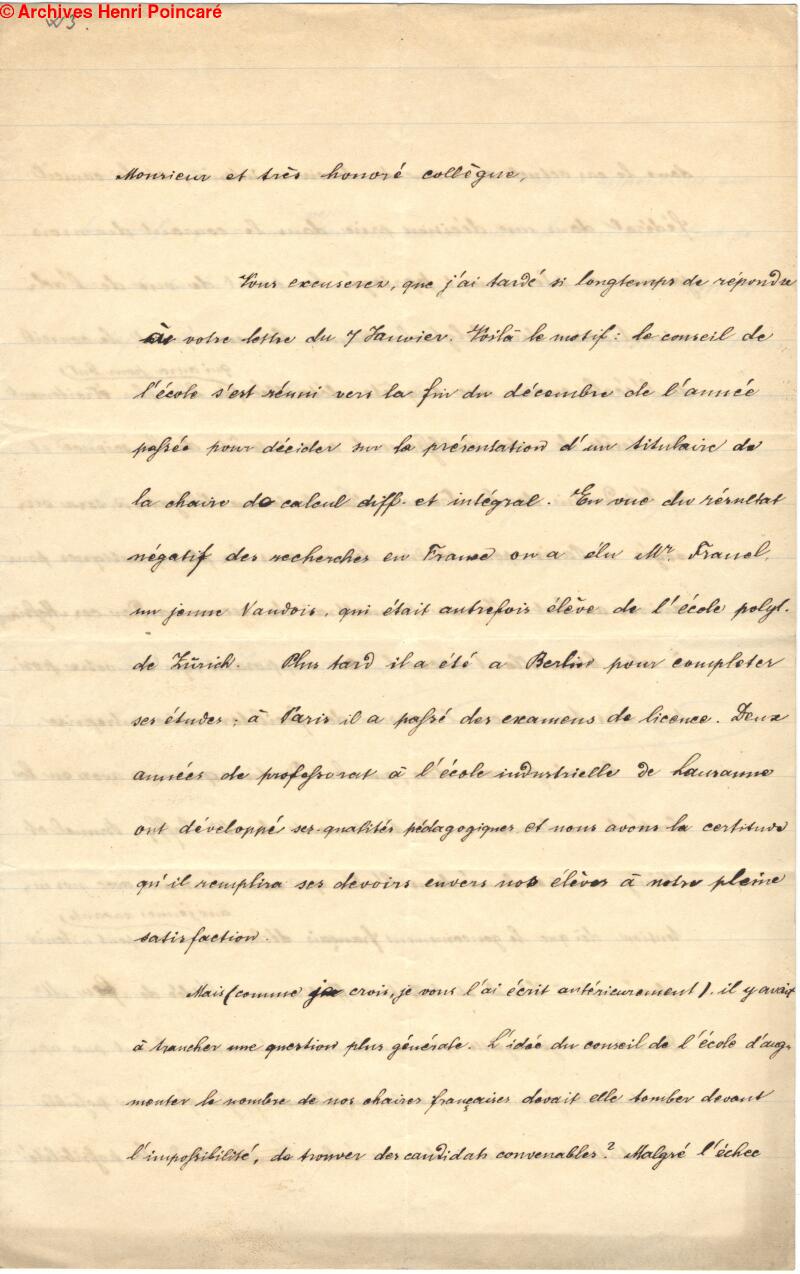 © Archives Henri Poincaré
Monsieur et très honoré collègue,
Vous excuserez, que j'ai tardé si longtemps de répondre
à votre lettre du 7 Janvier. Voilà le motif: le conseil de
l'école s'est réuni vers la fin du décembre de l'année
passée pour décider sur la présentation d'un titulaire de
la chaire de calcul diff. et intégral. En vue du résultat
négatif des recherches en France on a élu Mr. Franel,
un jeune Vaudois, qui était autrefois élève de l'école polyt.
de Zürich. Plus tard il a été a Berlin pour completer
ses études; à Paris il a passé des examens de licence. Deux
années de professorat à l'école industrielle de Lausanne
ont développé ses qualités pédagogiques et nous avons la certitude
qu'il remplira ses devoirs envers nos élèves à notre pleine
satisfaction.
Mais (comme je crois, je vous l'ai écrit antérieurement). il y avait
à trancher une question plus générale. L'idée du conseil de l'école d'aug-
menter le nombre de nos chaires françaises devait elle tomber devant
l'impossibilité, de trouver des candidats convenables? Malgré l'échec